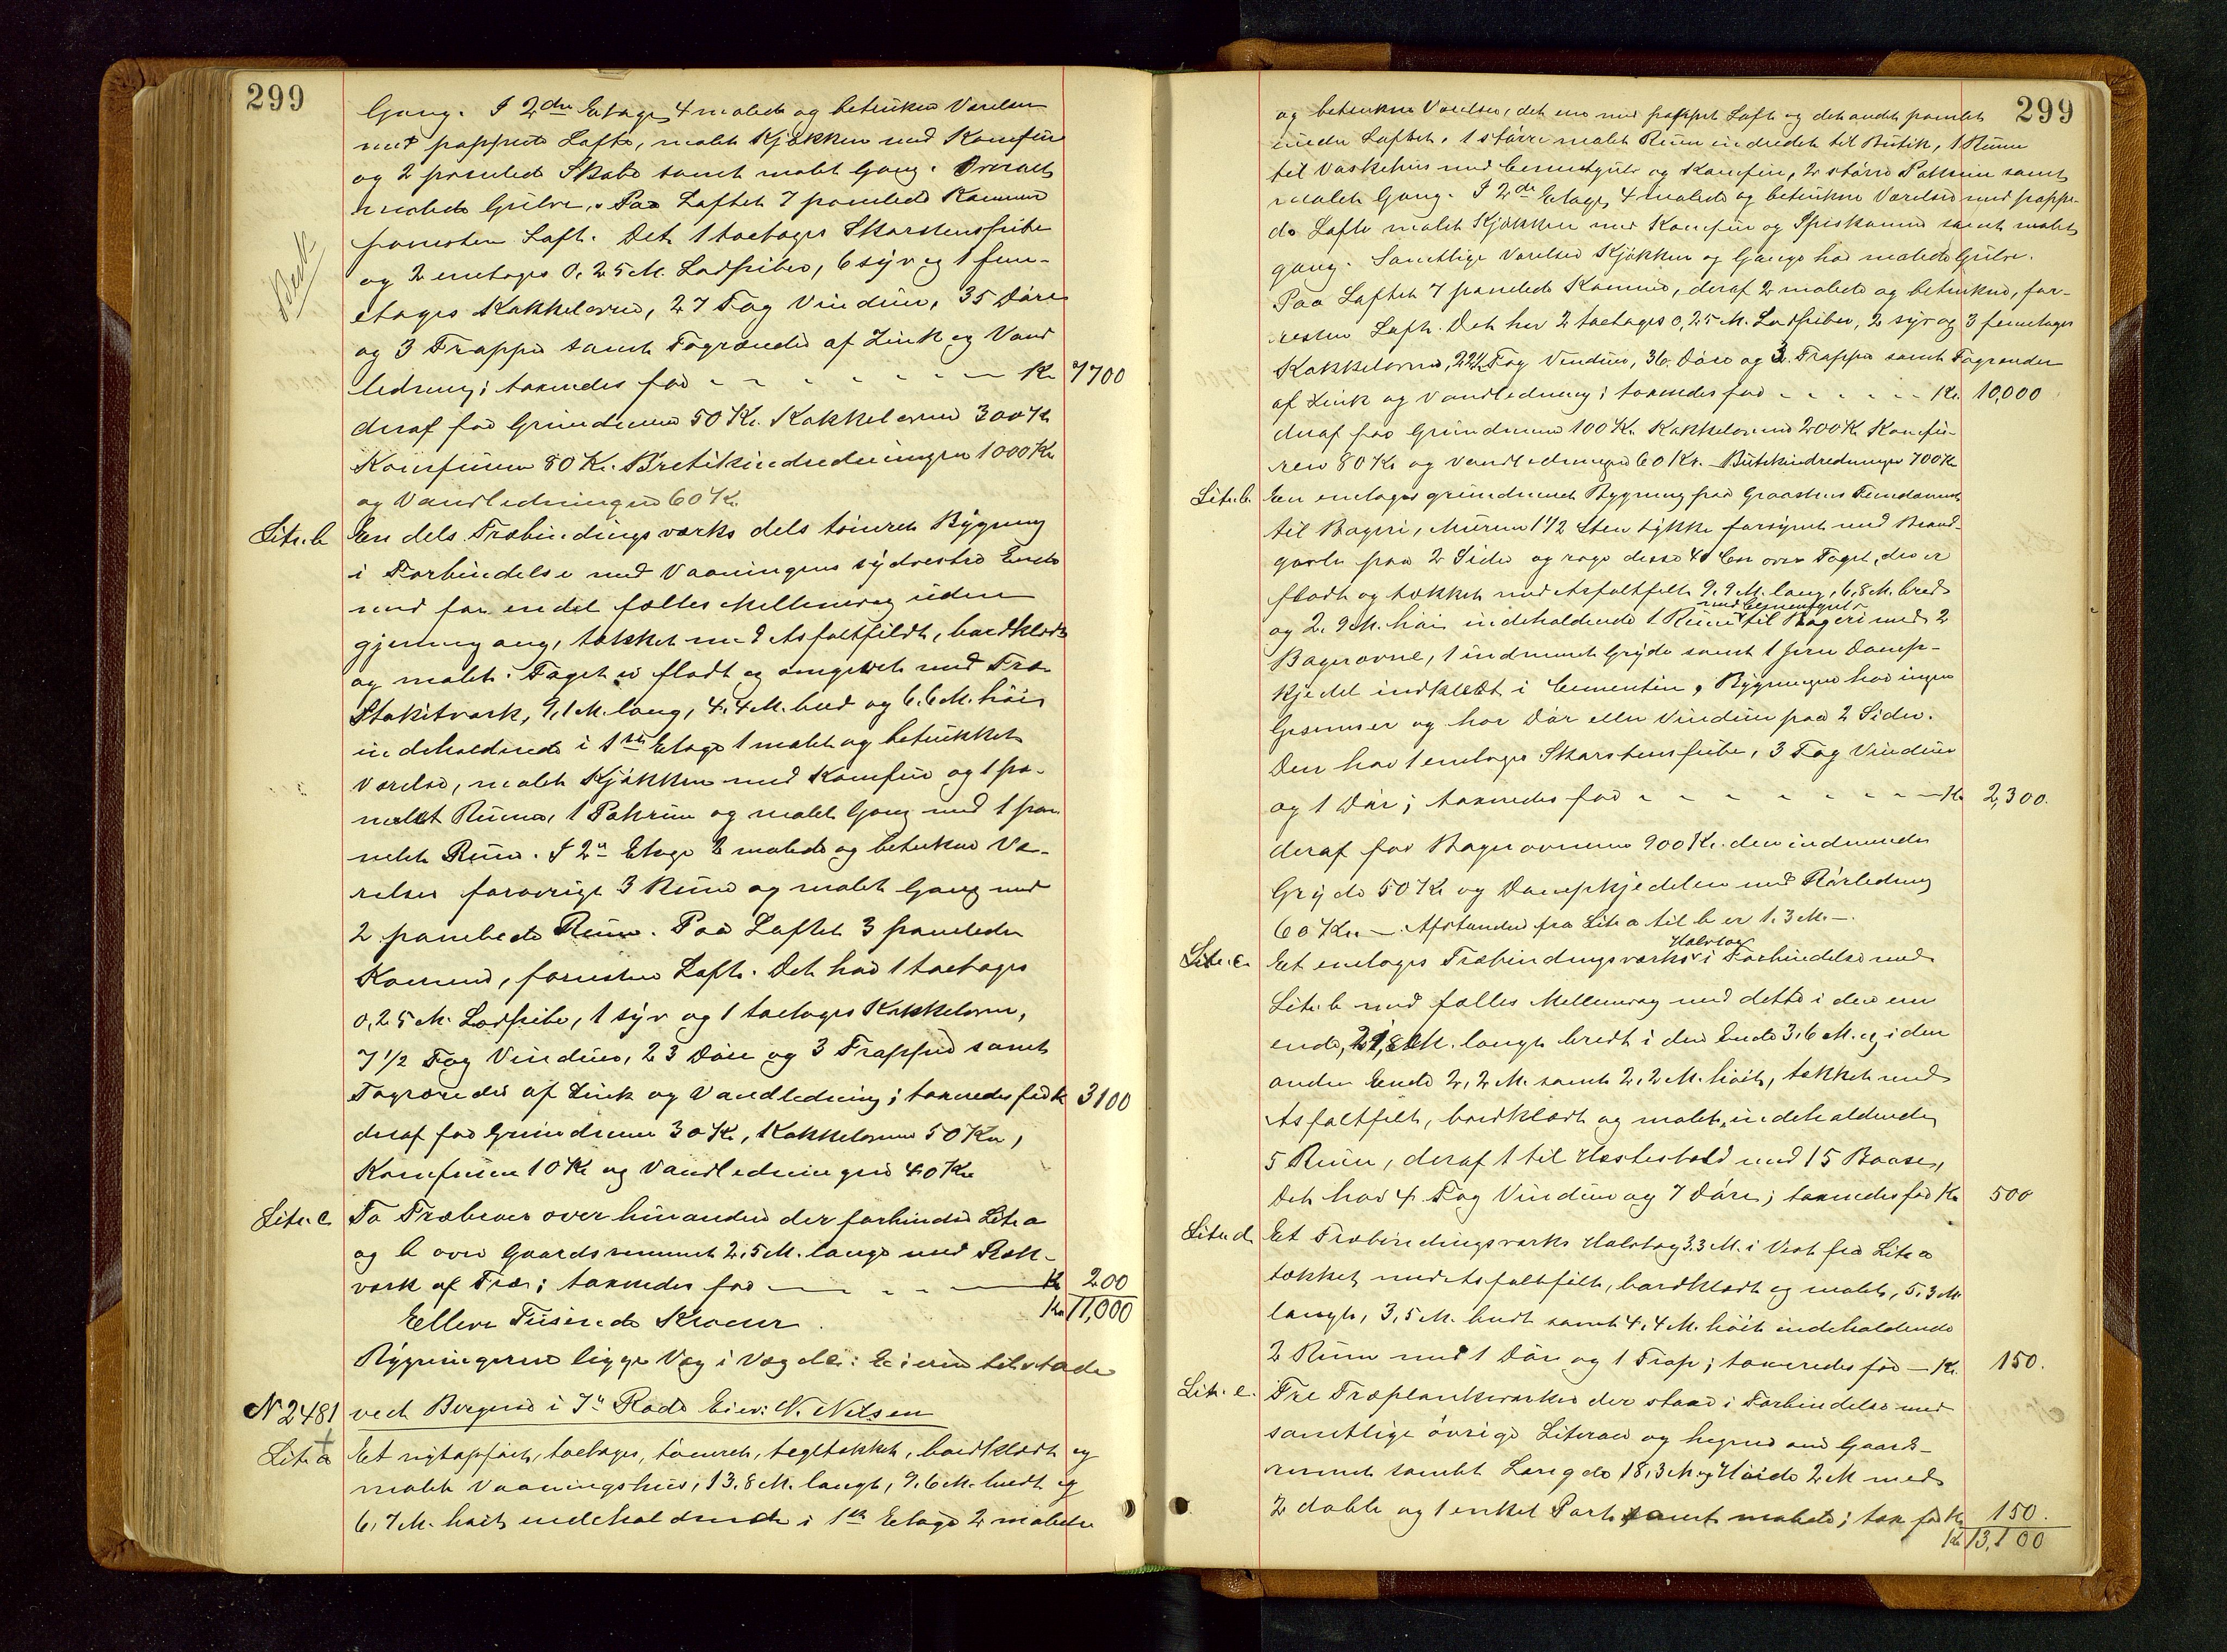 299
Gang. I 2den Etage 4 malede og betrukne Værelser
med pappede Lofte, malet Kjøkken med Komfur
og 2 panelede Skabe samt malet Gang. Overalt
malede Gulve. Paa Loftet 7 panelede Kammere
foresten Loft. Det 1 toetages Skorstenspibe
og 2 enetages 0.25 M. Lodpiber, 6 syv og 1 fem-
etages Kakkelovne, 27 Fag Vinduer, 35 Døre
og 3 Trapper samt Tagrender af Zink og Vand
ledning; taxeredes for - - - - - - - Kr 7700
deraf for Grundmuren 50 Kr. Kakkelovne 300 Kr
Komfuren 80 Kr. Butikindredningen 1000 Kr
og Vandledningen 60 Kr.
Litr. b En dels Træbindingsværks dels tømret Bygning
i Forbindelse med Vaaningens sydvestre Ende
med for en del fælles Mellemvæg uden
gjennemgang, tækket med Asfaltfildt, bordklædt
og malet. Taget er fladt og omgivet med Træ
Stakitværk, 9,1 M. lang, 4,4 M. bred og 6.6 M. høi
indeholdende i 1ste Etage 1 malet og betrukket
Værelse, malet Kjøkken med Komfur og 1 pa-
nelet Rum, 1 Pakrum og malet Gang med 1 pa
nelet Rum. I 2n Etage 2 malede og betrukne Væ-
relser forøvrigt 3 Rum og malet Gang med
2 panelede Rum. Paa Loftet 3 panelede
Kammere, foresten Loft. Det har 1 toetages
0,25 M. Lodpibe, 1 syv og 1 toetages Kakkelovn,
7 1/2 Fag Vinduer, 23 Døre og 3 Trapper samt
Tagrender af Zink og Vandledning; taxeredes for Kr 3100
deraf for Grundmuren 30 Kr, Kakkelovnene 50 Kr,
Komfuren 10 Kr og Vandledningen 40 Kr
Litr. c To Træbroer over hinanden der forbinder Litr a
og b over Gaardsrummet 2,5 M. lange med Ræk-
værk af Træ; taxeredes for - - - Kr 200
Kr 11,000
Elleve Tusinde Kroner.
Bygningerne ligge Væg i Væg. Eieren tilstede
No 2481 ved Bergene i 7n Rode Eier: N. Nilsen
Litr a Et nytopført, toetages, tømret, tegltækket, bordklædt og
malet Vaaningshus, 13.8 M. langt, 9.6 M. bredt og
6,7 M. høit indeholdende i 1ste Etage 2 malede
299
og betrukne Værelser, det ene med pappet Loft og det andet panelet
under Loftet. 1 større malet Rum indredet til Butik, 1 Rum
til Vaskehus med Cementgulv og Komfur, 2 større Pakrum samt
malet Gang. I 2de Etage 4 malede og betrukne Værelser med pappe-
de Lofte malet Kjøkken med Komfur og Spiskammer samt malet
gang. Samtlige Værelser Kjøkken og Gange har malede Gulve.
Paa Loftet 7 panelede Kammere, deraf 2 malede og betrukne, for-
resten Loft. Det har 2 toetages 0,25 M. Lodpiber, 2 syv og 3 femetages
Kakkelovne, 22 1/2 Fag Vinduer, 36 Døre og 3 Trapper samt Tagrender
af Zink og Vandledning; taxeredes for - - - - - Kr. 10,000
deraf for Grundmuren 100 Kr. Kakkelovnene 200 Kr. Komfu-
ren 80 Kr og Vandledningen 60 Kr. Butikindredningen 700 Kr
Litr. b. En enetages grundmuret Bygning paa Graastens Fundament
til Bageri, Muren 1 1/2 Sten tykke forsynet med Brand-
gavle paa 2 Sider og rage disse 40 Cm over Taget, der er
fladt og tækket med Asfaltfelt 9,9 M. lang, 6,8 M. bred
med Cementgulv
og 2,9 M. høi indeholdende 1 Rum til Bageri med 2
Bagerovne, 1 indmuret Gryde samt 1 Jern Damp-
kjedel indklædt i Cementin, Bygningen har ingen
Gesimser og har Dør eller Vindue paa 2 Sider.
Den har 1 enetages Skorstenspibe, 3 Fag Vinduer
og 1 Dør; taxeredes for - - - - - - - Kr 2,300.
deraf for Bagerovnene 900 Kr. den indmurede
Gryde 50 Kr og Dampkjedelen med Rørledning
60 Kr. - Afstanden fra Litr a til b er 1.3 M. -
Halvtag
Litr. c. Et enetages Træbindingsværks i Forbindelse med
Litr. b med fælles Mellemvæg med dette i den ene
ende, 21,8 M. langt bredt i den Ende 3,6 M. og i den
anden Ende 2,2 M. samt 2,2 M. høit, tækket med
Asfaltfelt, bordklædt og malet, indeholdende
5 Rum, deraf 1 til Hestestald med 15 Baase,
Det har 4 Fag Vinduer og 7 Døre; taxeredes for Kr 500
Litr d. Et Træbindingsværks Halvtag 3.3 M. i Vest fra Litr a
tækket med Asfaltfilt, bordklædt og malet, 5,3 M
langt, 3,5 M. bredt samt 4,4 M. høit indeholdende
2 Rum med 1 Dør og 1 Trap; taxeredes for - Kr. 150.
Litr. e. Tre Træplankeværker der staar i Forbindelse med
samtlige øvrige Literaer og hegner om Gaards-
rummet samlet Længde 18,3 M. og Høide 2 M med
2 doble og 1 enkel Port samt malede; tax for Kr 150.
Kr 13,100